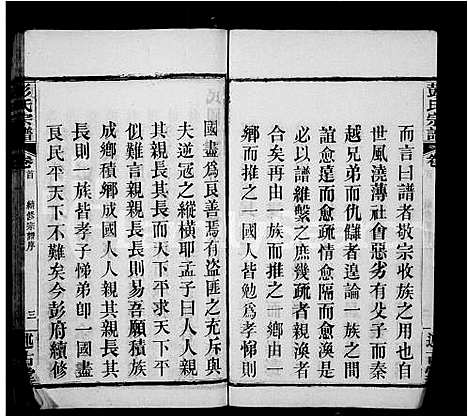 彭氏宗譜
卷首
而言曰譜者敬宗收族之用也
世風澆薄社會惡劣有父子而秦
越兄弟而仇讎者遑論一族一房之
誼愈遠而愈疏情愈隔而愈渙是
必以譜維繫之庶幾疏者親渙者
合矣再由一族而推之一鄉由一
鄉而推之一國人皆勉為孝悌則
國盡為良善焉有盜匪之充斥與
夫逆寇之縱橫耶孟子曰人人親
其親長其長而天下平求天下平
似難言親親長長則易善願積族
成鄉積鄉成國人人親其親長其
長則一族皆孝子悌弟卽一國盡
良民平天下不難矣今彭府續修
彭氏宗譜
卷首
續修宗譜序
三
述古堂